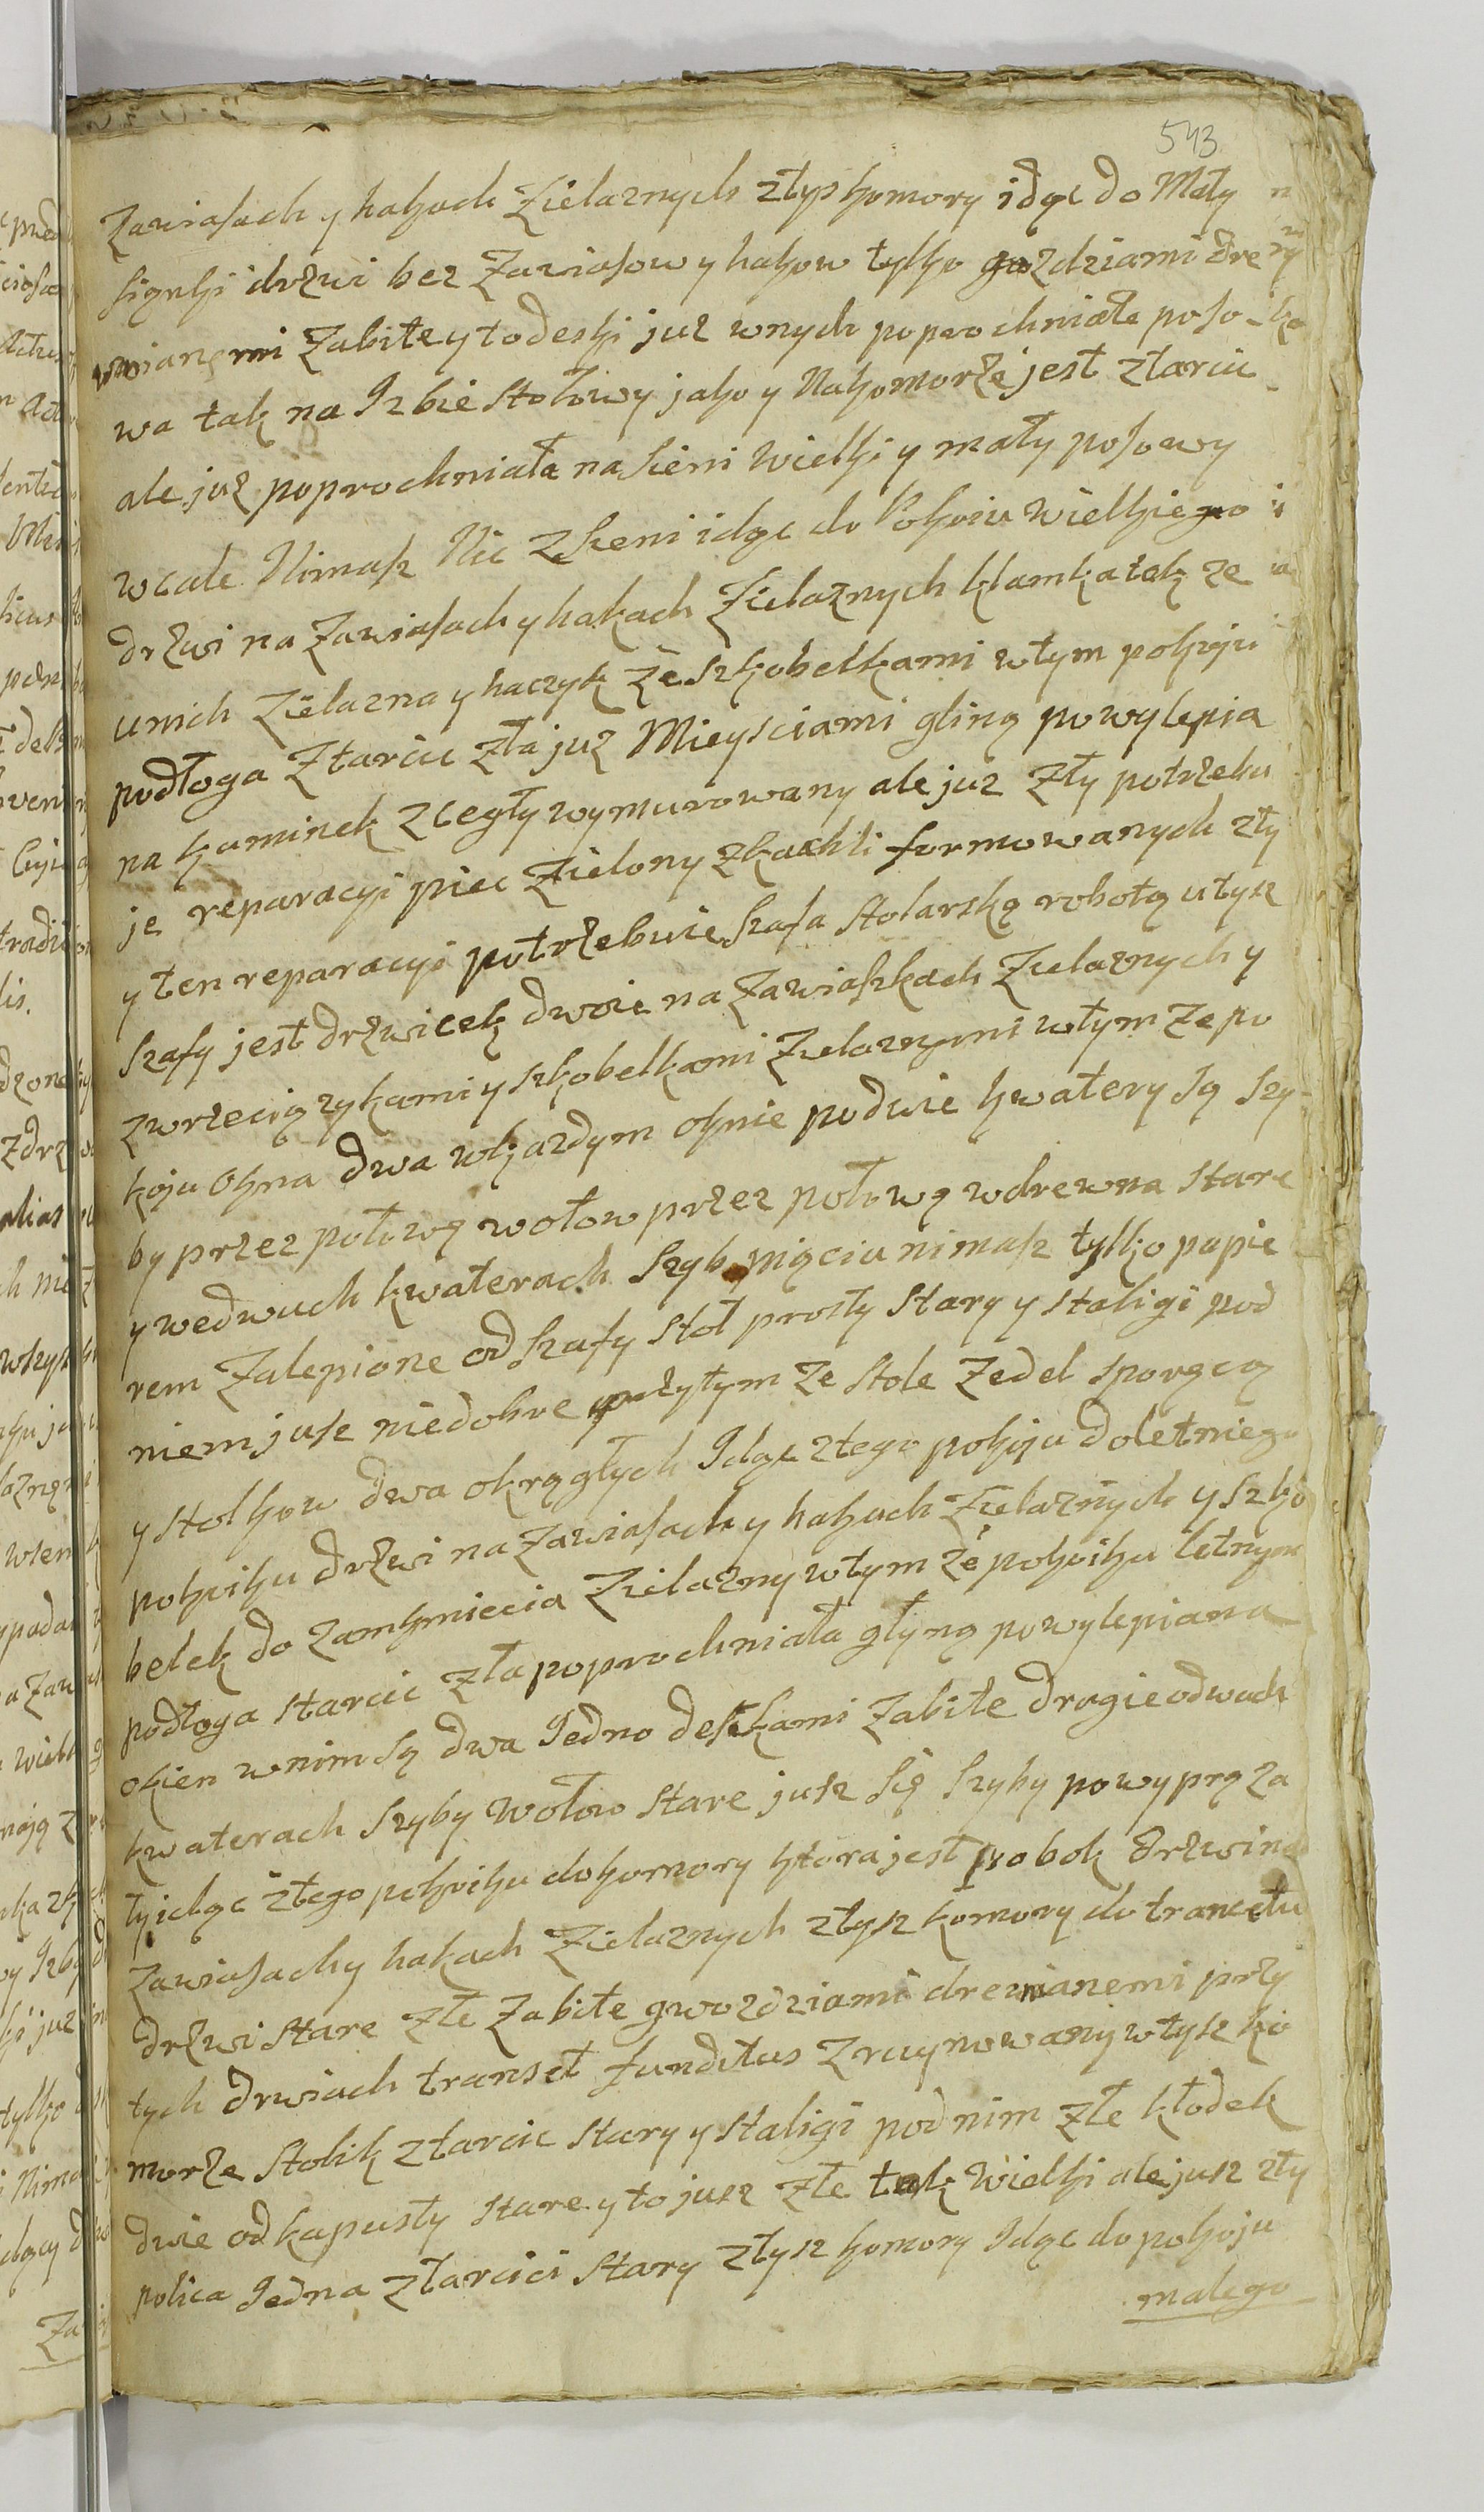 543
Zawiasach y hakach Zielaznych ztys komory idąc do Mały
sionki drzwi bez Zawiasow y hakow tylko gozdziami dre
wnianemi Zabite y to deski już wnych poprochniałe poso
wa tak na Izbie Stołowy jako y Nakomorze jest ztarcic
ale już poprochniała na Sieni Wielki y mały posowy
wcale Nimasz Nic Z Sieni idąc do Pokoiu Wielkiego
drzwi na Zawiasach y hakach Zielaznych klamka tak ze
unich Zielazna y haczyk Ze Szkobelkami wtym pokoju
podłoga Ztarcic Zła już Mieysciami gliną powylepia
na kuminek z cegły wymurowany ale juz Zły potrzebu
je reparacyi piec Zielony Zkachli formowanych zły
y ten reparacyi potrzebuie Szafa Stolarską robotą utysz
Szafy jest drzwicek dwoie na Zawiaszkach Zielaznych y
Zwrzeciązykami y szkobelkami Zielaznymi wtym Ze po
koju Okna dwa wkazdym oknie podwie kwatery Są Szy
by przez połowę wołow przez połowę wdrewna Stare
y wedwuch kwaterach Szyb pięciu nimasz tylko papie
rem Zalepione od Szafy Stoł prosty Stary y staligi pod
niem jusz niedobre przytym Ze Stole Zedel sporęcą
y Stolkow dwa okrągłych Idąc ztego pokoju do letniego
pokoiku drzwi na Zawiasach y hakach Zielaznych y Szko
belek do Zamkniecia Zielazny wtym ze pokoiku letnym
podłoga starcic zła poprochniała glyną powylepiana
okien wnim Są dwa Jedno deskami Zabite drugie odwuch
kwaterach Szyby Wołow Stare jusz Się Szyby powyprąza
ły idąc ztego pokoiku do komory ktora jest po bok drzwi na
Zawiasach y hakach Zielaznych ztysz komory do trancetu
drzwi Stare Złe Zabite gwozdziami drewnianemi przy
tych drwiach transet funditus Zruynowany wtysz ko
morze Stolik ztarcic Stary y Staligi pod nim złe kłodek
dwie od kapusty Stare y to jusz Złe tak Wielki ale jusz zły
polica Jedna ztarcici Stary ztysz komory Idąc do pokoju
małego